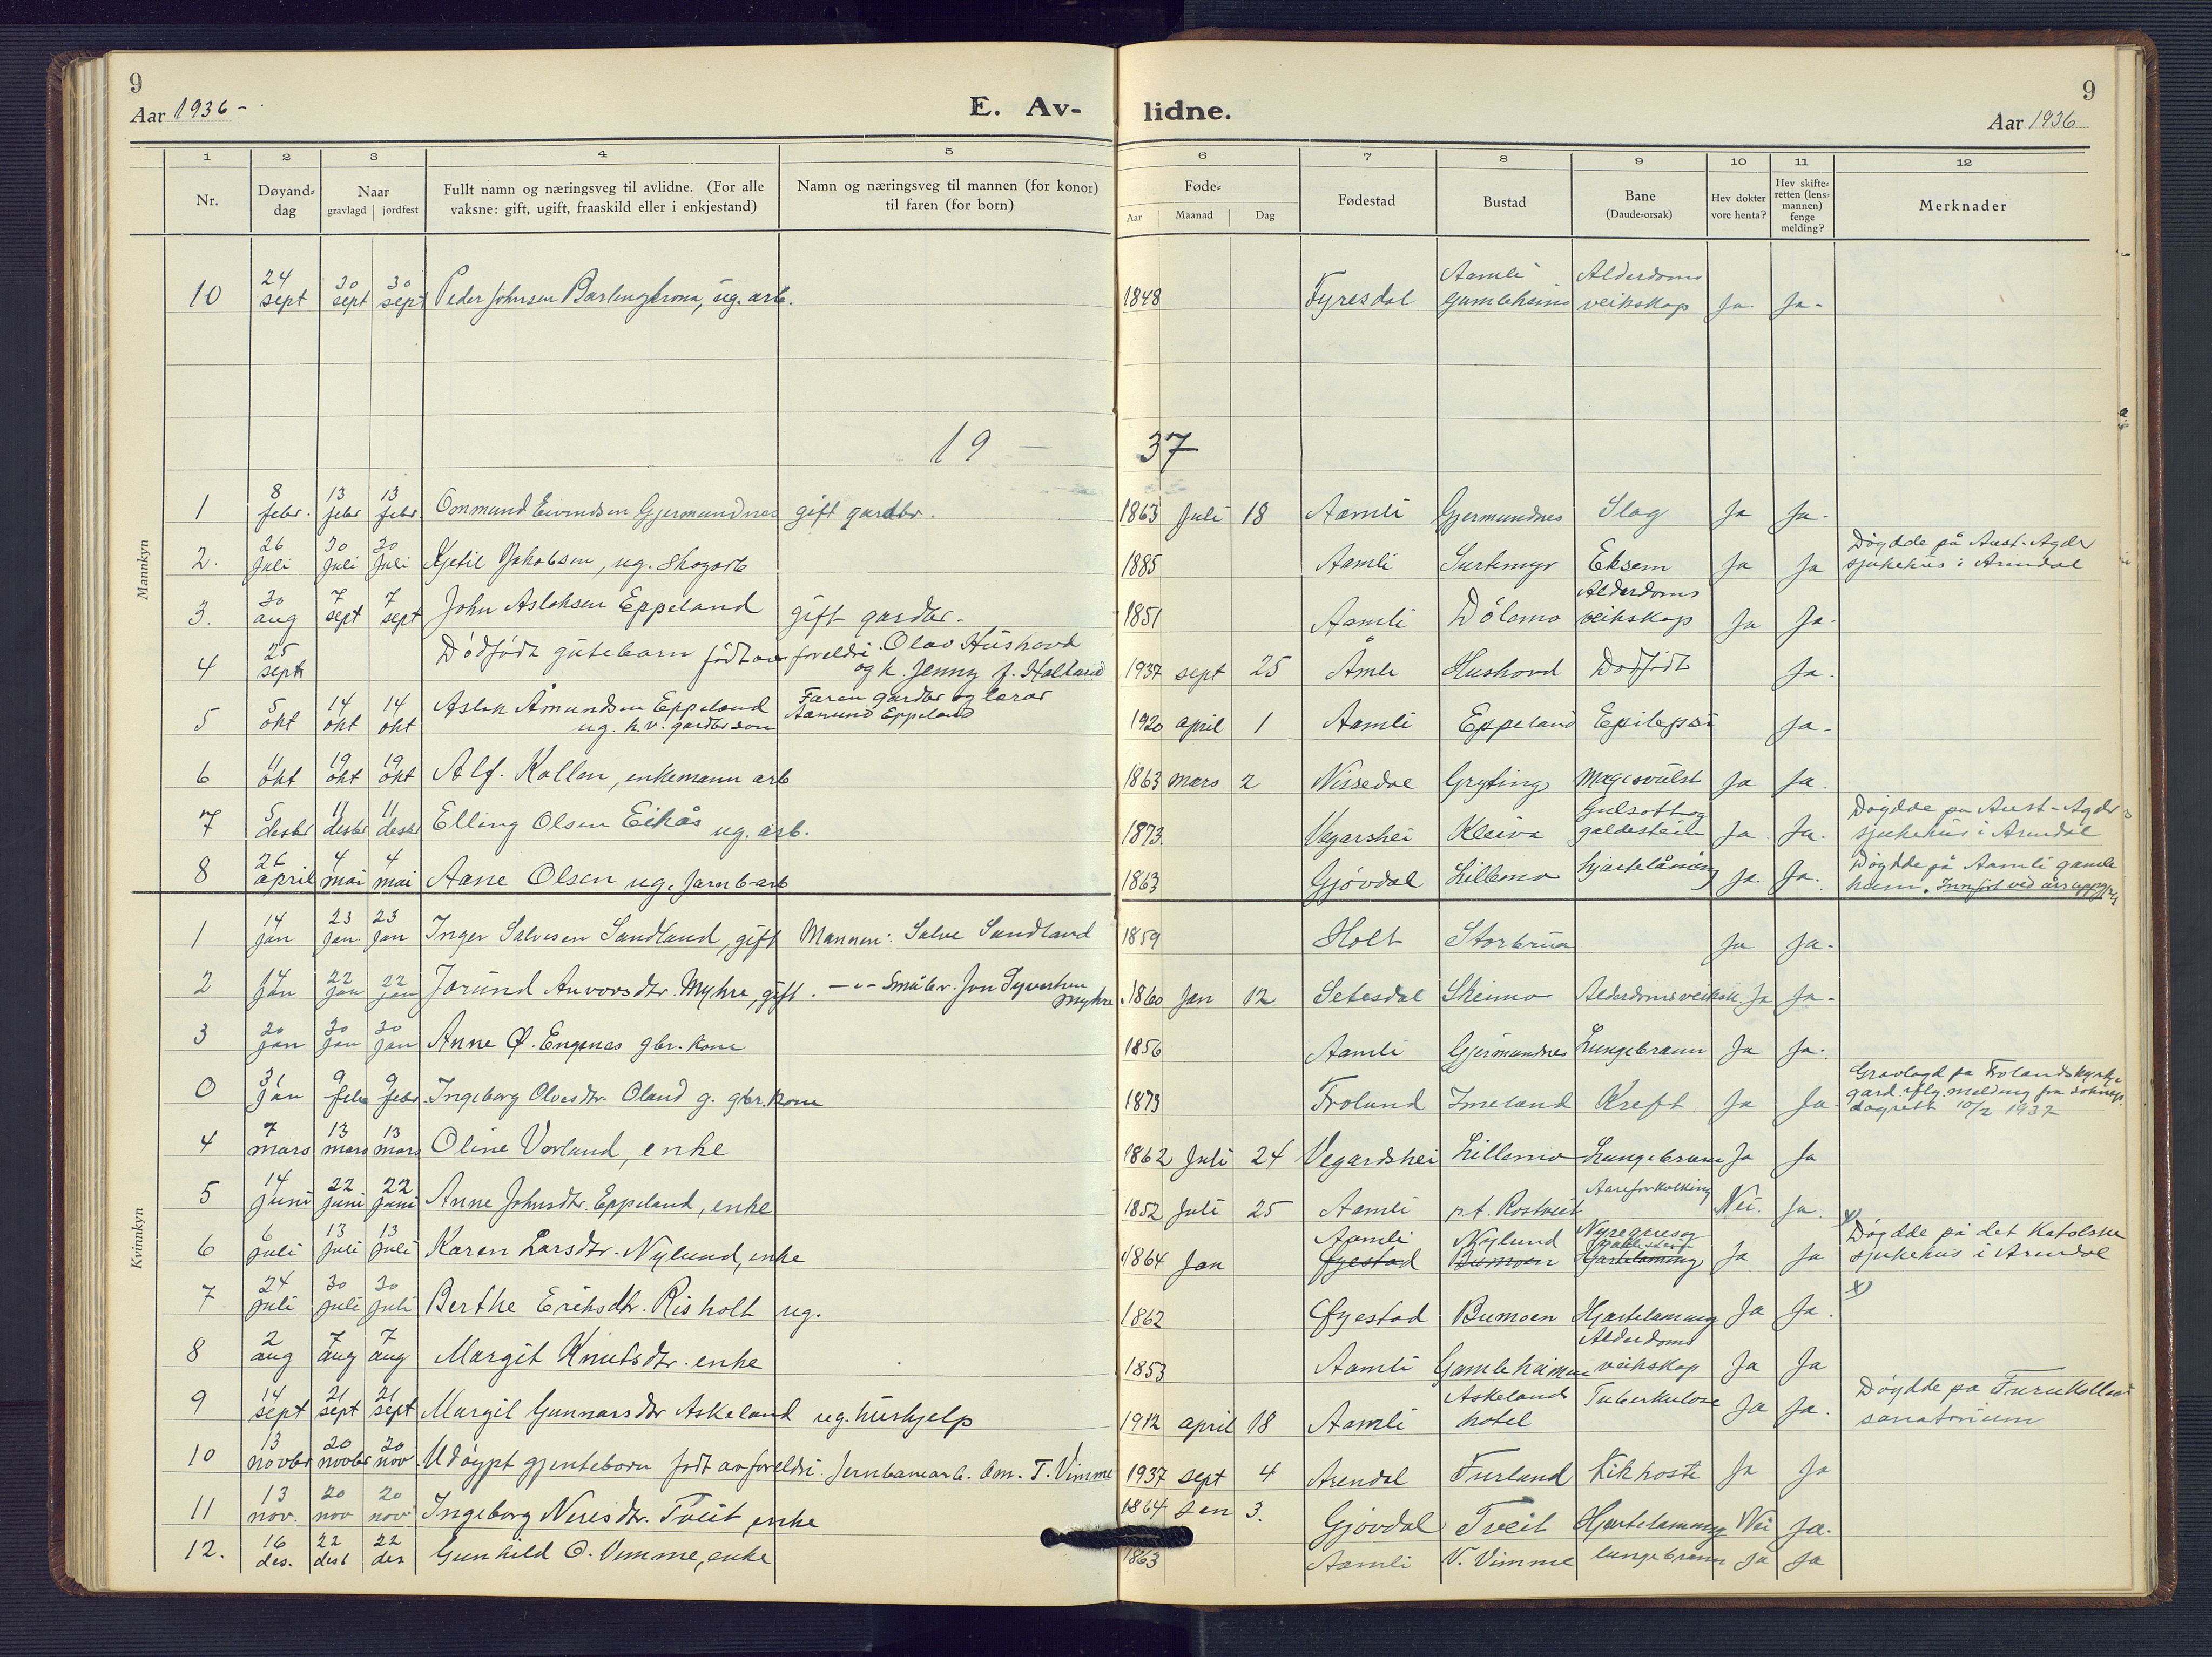 9
Aar 1936 -
E. Av-
lidne.
9
Aar 1936
1 2 3 4 5 6 7 8 9 10 11 12
Nr.
Døyand-
dag
Naar
gravlagd | jordfest
Fullt namn og næringsveg til avlidne. (For alle
vaksne: gift, ugift, fraaskild eller i enkjestand)
Namn og næringsveg til mannen (for konor)
til faren (for born)
Føde-
Aar Maanad Dag
Fødestad
Bustad
Bane
(Daude-orsak)
Hev dokter
vore henta?
Hev skifte-
retten (lens-
mannen)
fenge
melding?
Merknader
Mannkyn
10 24 sept 30 sept 30 sept Peder Johnsen Barlengkrona, ug. arb. 1848 Fyresdal Aamli Gamleheim Alderdoms veikskap Ja Ja-
19 — 37
1 8 febr. 13 febr 13 febr. Ommund Eivindsen Gjermundnes gift gardbr. 1863 Juli 18 Aamli Gjermundnes Slag Ja Ja-
2. 26 Juli 30 Juli 30 Juli Kjetil Jakobsen, ug. skogarb 1885 Aamli Surtemyr Eksem Ja Ja Døydde på Aust-Agder
sjukehus i Arendal
3. 30 aug 7 sept 7 sept John Aslaksen Eppeland gift gardbr. 1851 Aamli Dölemo Alderdoms veikskap Ja Ja-
4 25 sept Dödfödt gutebarn födt av foreldri Olav Hushovd
og k. Jenny f. Haltand 1937 sept 25 Åmli Hushovd Dödfödt Ja.
5 5 okt 14 okt 14 okt Aslak Åmundsen Eppeland
ug. h.v. gardbr son Faren gardbr og lærar
Aamund Eppeland 1920 april 1 Aamli Eppeland Epilepsi Ja-
6 11 okt 19 okt 19 okt Alf. Kallen, enkemann arb 1863 mars 2 Nissedal Gryting Magesvulst Ja Ja.
7 5 desbr 11 desbr 11 desbr Elling Olsen Eikås ug. arb. 1873. Vegarshei Kleiva Gulsott og
galdestein Ja. Ja. Döydde på Aust-Agder
sjukehus i Arendal
8 26 april 4 mai 4 mai Aane Olsen ug. Jarnb-arb 1863 Gjövdal Lillemo Hjartelåming Ja. Ja. Döydde på Aamli gamle
heim. Innfört ved årsuppgj.
Kvinnkyn
1 14 jan 23 jan. 23 jan Inger Salvesen Sundland, gift Mannen: Salve Sundland 1859 Holt Storbrua Ja Ja-
2 14 jan 22 jan 22 jan Jorund Anvorsdtr. Myhre, gift. -"- Småbr. Jon Syvertsen
Myhre 1860 Jan 12 Setesdal Skeimo Alderdomsveiksk. Ja Ja-
3 20 jan 30 jan 30 jan Anne O. Engenes gbr. kone 1856 Aamli Gjermundnes Lungebrann Ja Ja.
0 31 jan 9 febr 9 febr. Ingeborg Olvesdtr. Oland g. gbr. kone 1873 Froland Imeland Kreft Ja Ja Gravlagd på Frolandskyrkje
gard iflg. melding fra
dagsett 10/2 1937
4 7 mars 13 mars 13 mars Oline Vorland, enke 1862 Juli 24 Vegardshei Lillemo Lungebrann Ja Ja
5 14 juni 22 juni 22 juni Anne Johnsdtr. Eppeland, enke 1852 Juli 25 Aamli p.t. Rostveit Aareforkalking Nei. Ja.
6 6 juli 13 juli 13 juli Karen Larsdtr. Nylund, enke 1864 Jan Aamli Øyestad Nylund Bumoen Hjartelaming Ja Ja x) Döydde på det Katolske
sjukehus i Arendal
7 24 juli 30 juli 30 juli Berthe Eriksdtr. Risholt ug. 1862 Øyestad Bumoen Hjartelaming Ja Ja. x)
8 2 aug 7 aug 7 aug Margit Knutsdtr. enke 1853 Aamli Gamleheimen Alderdoms veikskap Ja Ja
9 14 sept 21 sept 21 sept Margit Gunnarsdtr Askeland ug. hushjelp 1912 april 18 Aamli Askeland hotel Tuberkulose Ja Ja. Döydde på Furukollen
sanatorium
10 13 novbr 20 novbr 20 nov. Udöypt gjenteborn födt av foreldri. Jernbanearb. Om. T. Vimme 1937 sept 4 Arendal Furland Kikhoste Ja Ja
11 13 nov. 20 nov 20 nov Ingeborg Neresdtr. Tveit enke 1864 Jan 3. Gjövdal Tveit Hjartelaming Nei Ja.
12. 16 des. 22 desb 22 des Gunhild O. Vimme, enke 1863 Aamli V. Vimme lungebrann Ja Ja